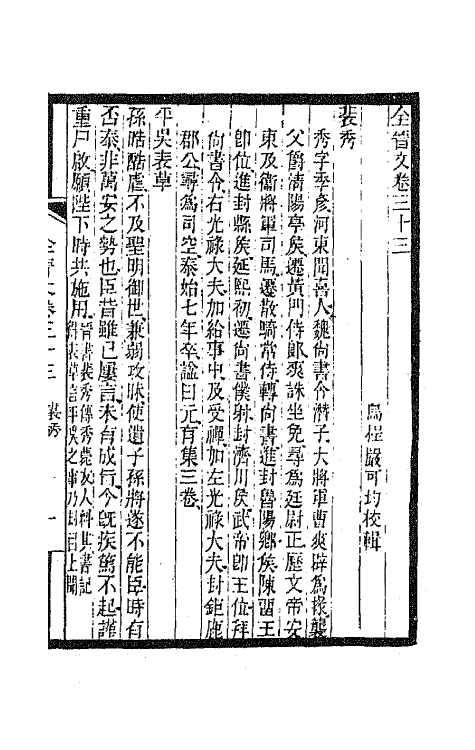 全晉文卷三十三
烏程嚴可均校輯
裴秀
秀字季彥河東聞喜人魏尙書令潛子大將軍曹爽辟爲掾襲
父爵淸陽亭矦遷黃門侍郞爽誅坐免尋爲廷尉正歷文帝安
東及衞將軍司馬遷散騎常侍轉尙書進封魯陽鄕矦陳畱王
卽位進封縣矦咸熙初遷尙書僕射封濟川矦武帝卽王位拜
尙書令右光祿大夫加給事中及受禪加左光祿大夫封鉅鹿
郡公尋爲司空泰始七年卒諡曰元有集三卷
平吳表草
孫晧酷虐不及聖明御世兼弱攻昧使遺子孫將遂不能臣時有
否泰非萬安之勢也臣昔雖已屢言未有成行今旣疾篤不起謹
重尸啟願陛下時共施用晉書裴秀傳秀薨友人料其書記
得表草言平吳之事乃封以上聞
全晉文卷三十三 裴秀
一